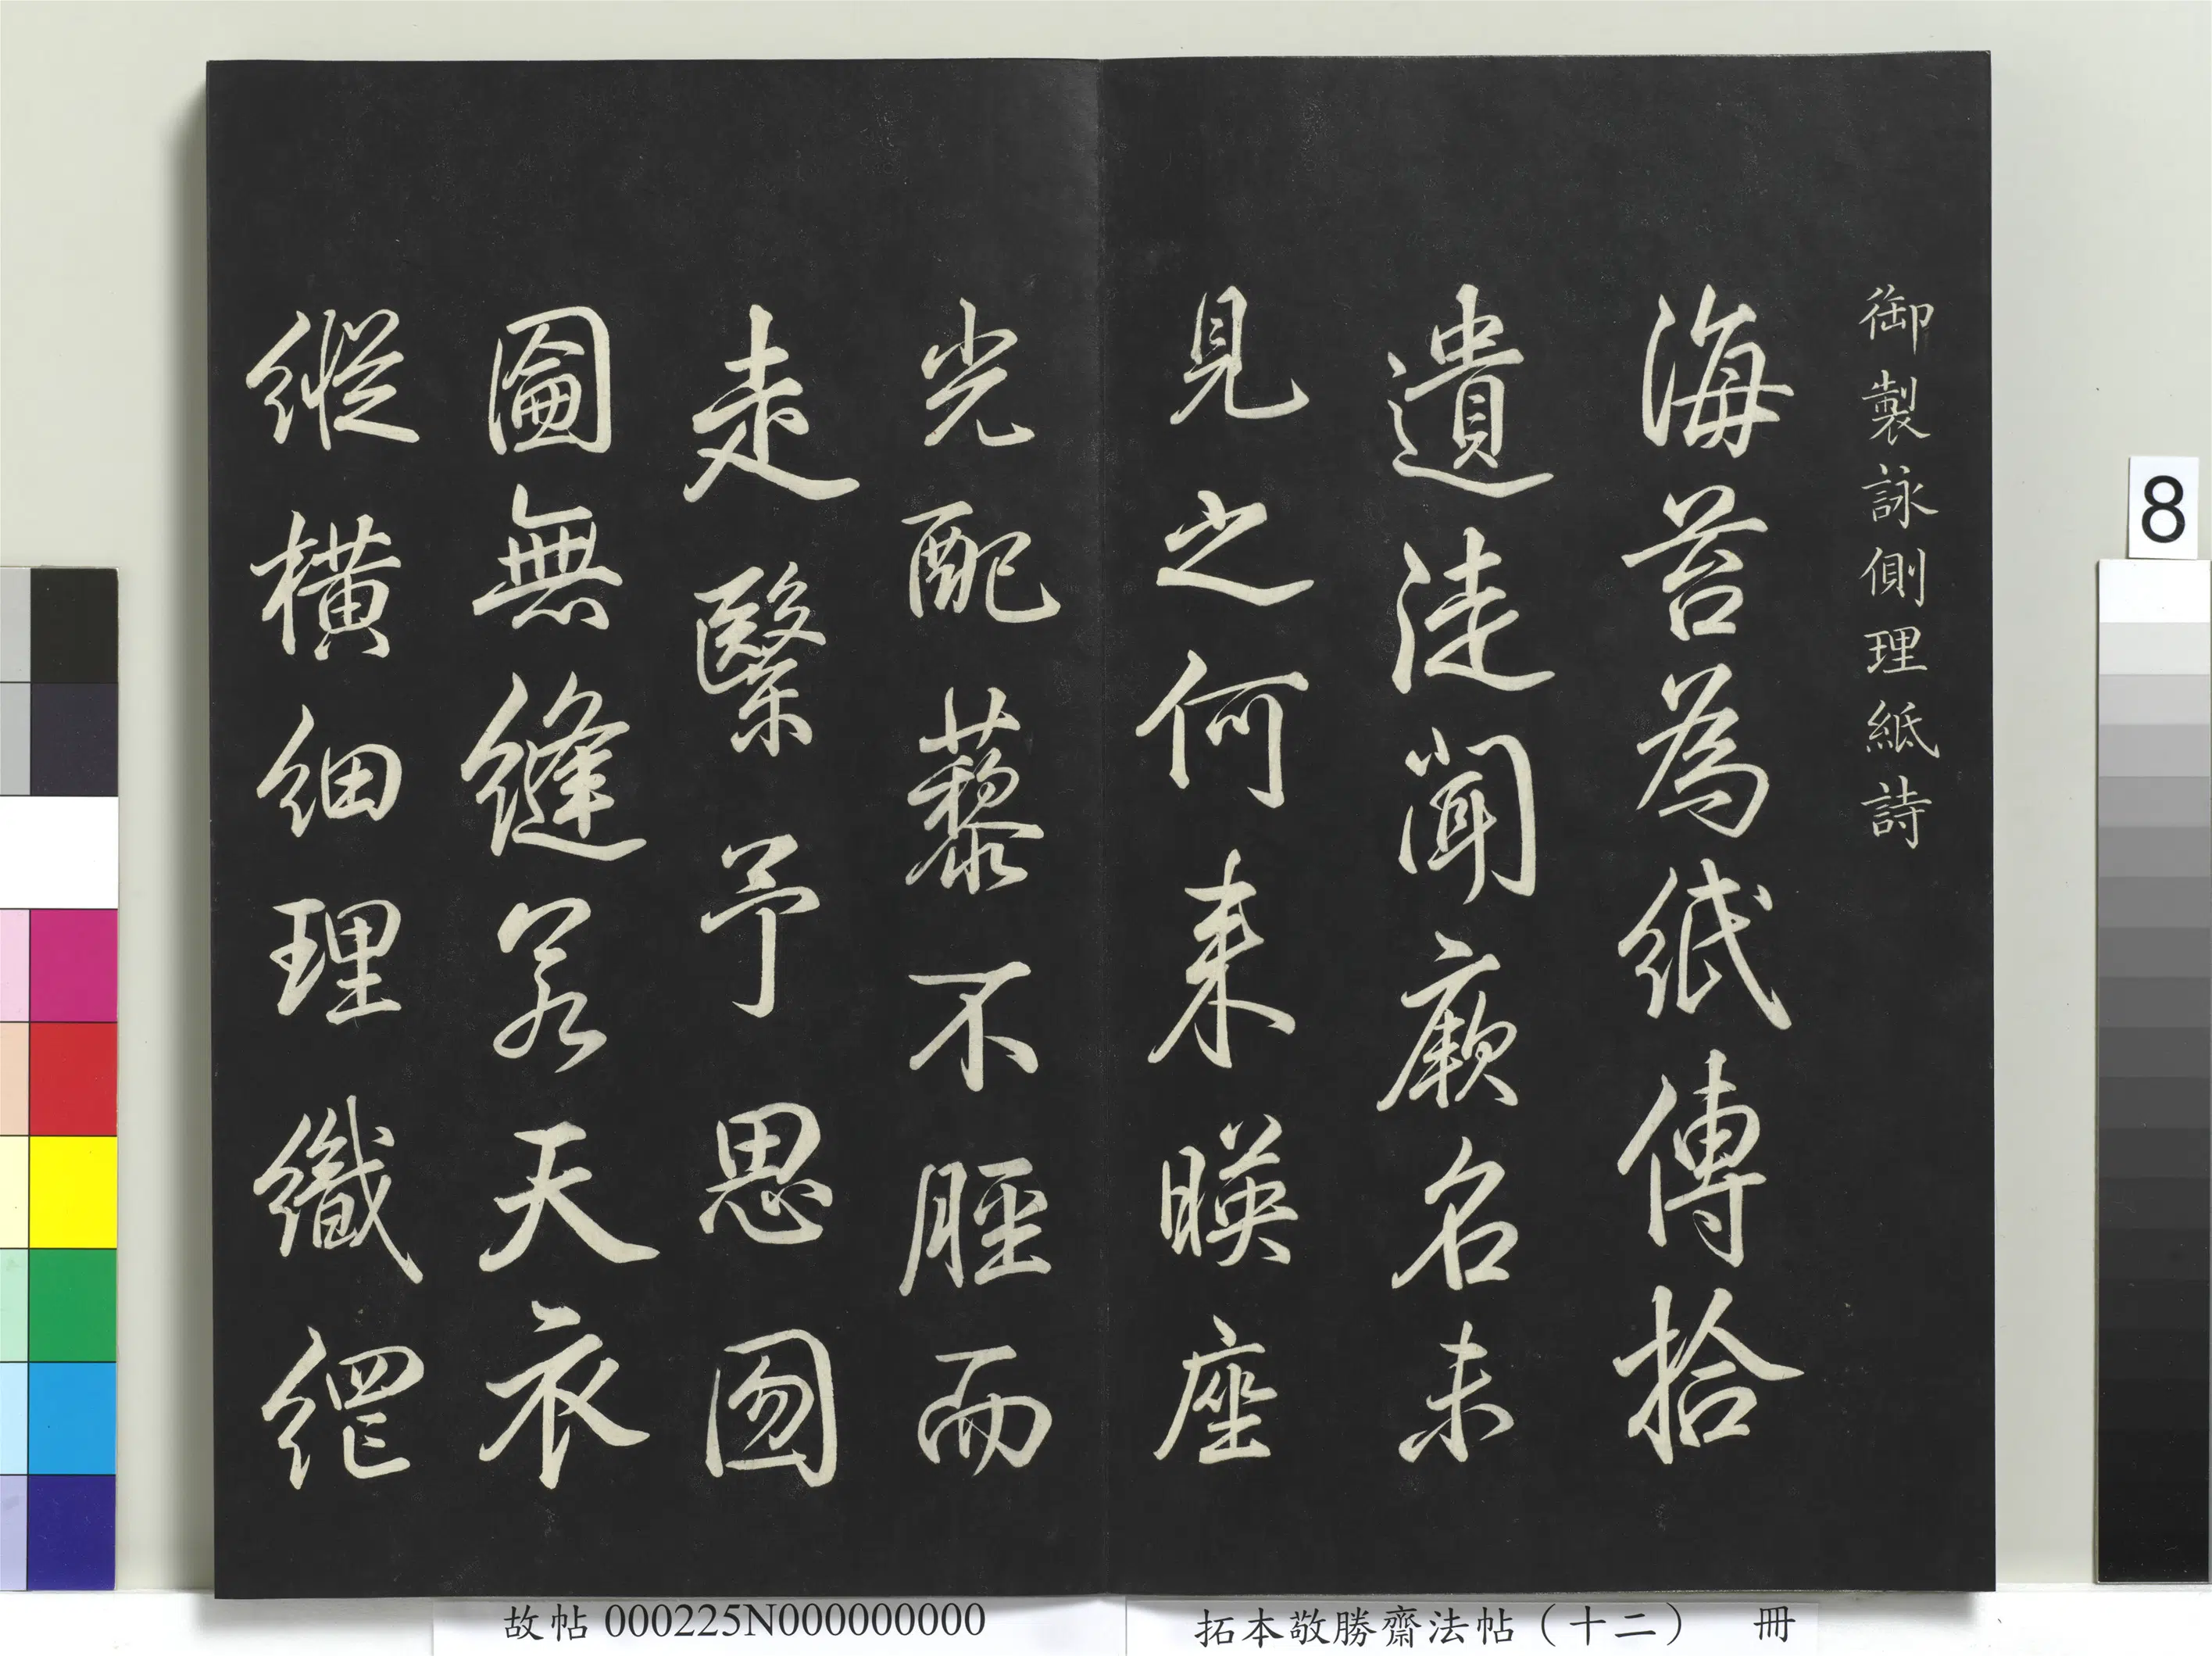 御製詠側理紙詩
海苔為紙傳拾
遺徒聞厥名未
見之何来暎座
光配藜不脛而
走繄予思囫
圇無縫若天衣
縱橫細理織網
8
故帖 000225N000000000
拓本敬勝齋法帖（十二） 冊